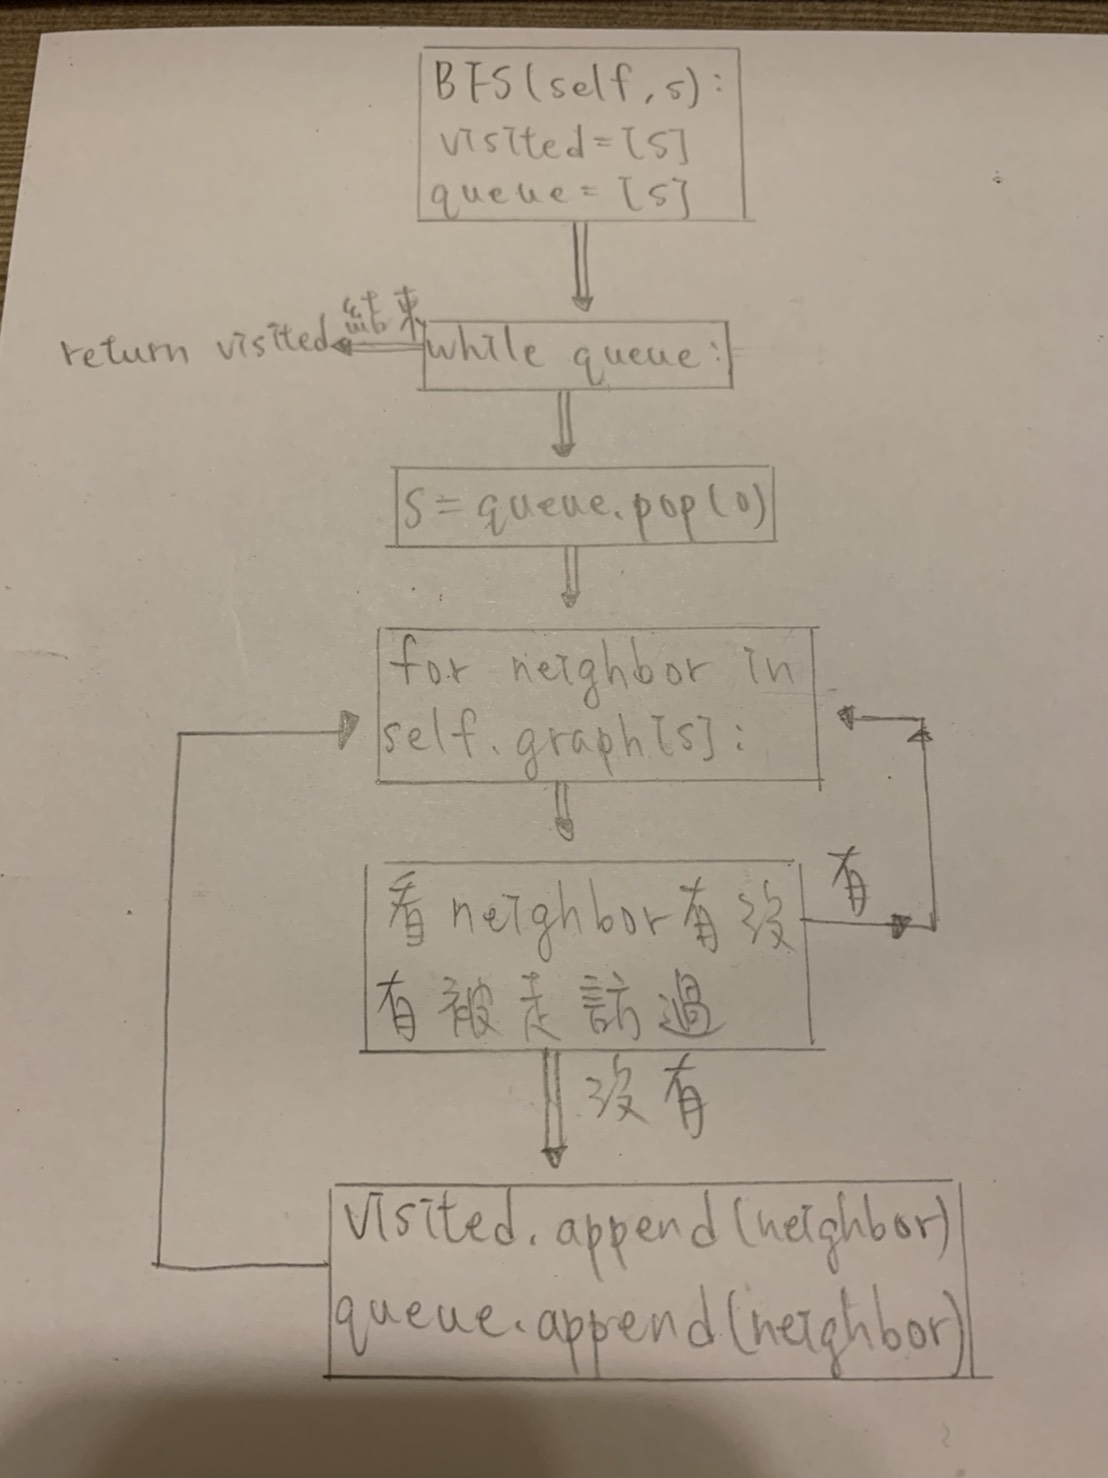 BFS(self,s):
visited=[s]
queue=[s]
結束
return visited
while queue:
s=queue.pop(0)
for neighbor in
self.graph[s]:
看neighbor有沒
有被走訪過
有
沒有
visited.append(neighbor)
queue.append(neighbor)